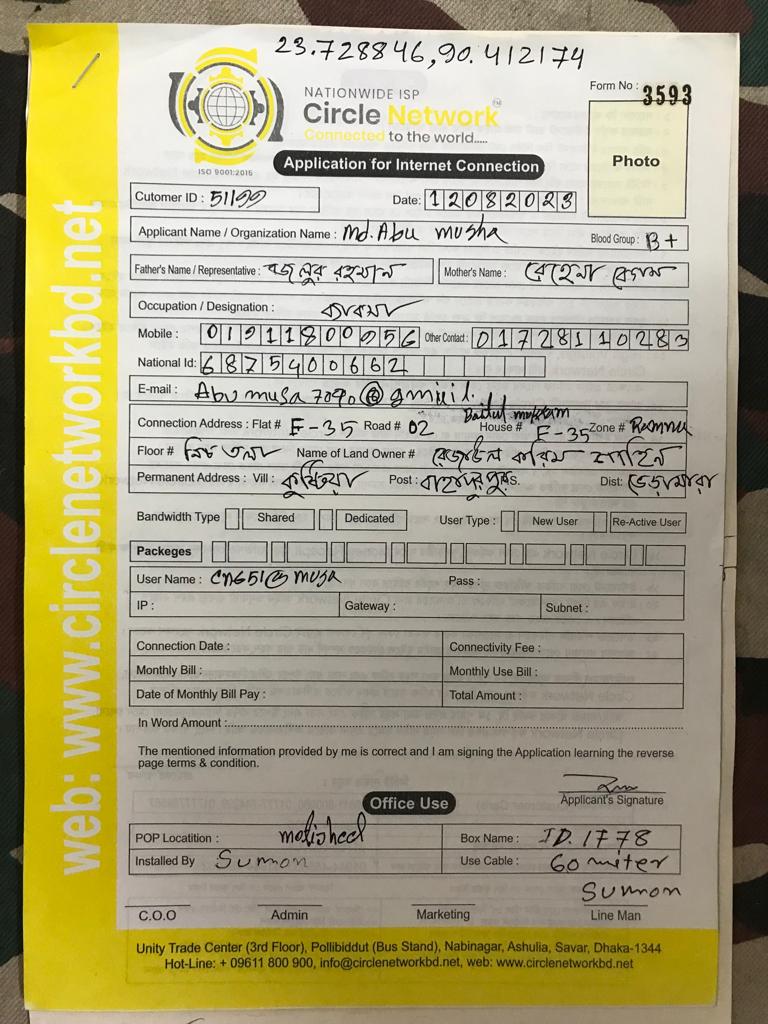 23.728846, 90.412174
NATIONWIDE ISP
Circle Network
Connected to the world.....
ISO 9001:2015
Form No : 3593
Photo
Application for Internet Connection
Cutomer ID : 51199 Date: 12082023
Applicant Name / Organization Name : Md. Abu Musha Blood Group : B+
Father's Name / Representative : বজলুর রহমান Mother's Name : রেহেনা বেগম
Occupation / Designation : ব্যাবসা
Mobile : 01911800056 Other Contact : 01728110283
National Id: 6875400662
E-mail : Abu musa 7090@gmiil.
Baitul mukaram
Connection Address : Flat # E-35 Road # 02 House # E-35 Zone # Ramna
Floor # নিচ তলা Name of Land Owner # রেজাউল করিম শাহিন
Permanent Address : Vill : কুষ্টিয়া Post : বাহাদুরপুর P.S. Dist: ভেড়ামারা
Bandwidth Type Shared Dedicated User Type : New User Re-Active User
Packeges
User Name : Pass :
IP : Gateway : Subnet :
Connection Date : Connectivity Fee :
Monthly Bill : Monthly Use Bill :
Date of Monthly Bill Pay : Total Amount :
In Word Amount :
The mentioned information provided by me is correct and I am signing the Application learning the reverse
page terms & condition.
Applicant's Signature
Office Use
POP Locatition : motisheel Box Name : ID. 1778
Installed By Sumon Use Cable : 60 miter
Sumon
C.O.O Admin Marketing Line Man
Unity Trade Center (3rd Floor), Pollibiddut (Bus Stand), Nabinagar, Ashulia, Savar, Dhaka-1344
Hot-Line: + 09611 800 900, info@circlenetworkbd.net, web: www.circlenetworkbd.net
web: www.circlenetworkbd.net